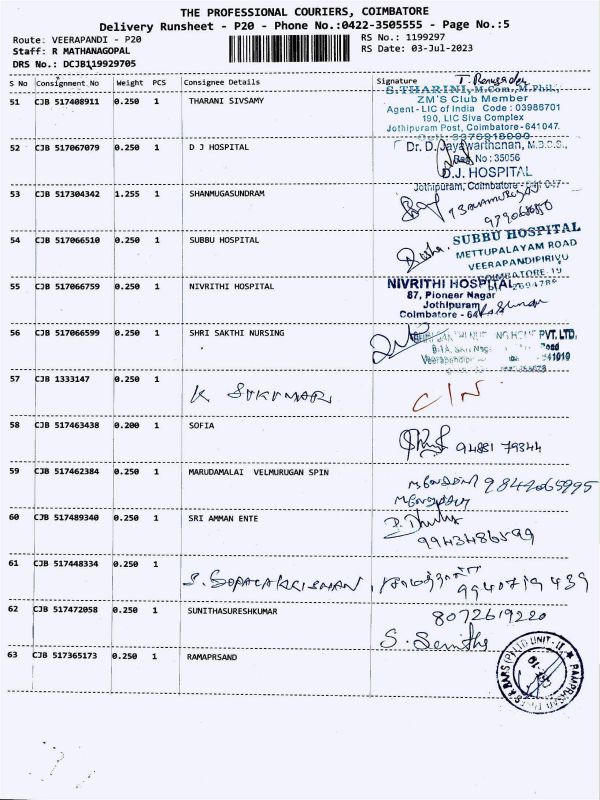 THE PROFESSIONAL COURIERS, COIMBATORE
Delivery Runsheet - P20 - Phone No.:0422-3505555 - Page No.:5
Route: VEERAPANDI - P20
RS No.: 1199297
Staff: R MATHANAGOPAL
RS Date: 03-Jul-2023
DRS No.: DCJB119929705
S No Consignment No Weight PCS Consignee Details Signature
51 CJB 517408911 0.250 1 THARANI SIVSAMY
S.THARINI, M.Com., M.Phil.,
ZM'S Club Member
Agent - LIC of India Code : 03986701
190, LIC Siva Complex
Jothipuram Post, Coimbatore-641047.
52 CJB 517067079 0.250 1 D J HOSPITAL
Dr. D. Jayawarthanan, M.B.B.S.,
Reg No : 35056
D.J. HOSPITAL
Jothipuram, Coimbatore-641 047
53 CJB 517304342 1.255 1 SHANMUGASUNDRAM
54 CJB 517066510 0.250 1 SUBBU HOSPITAL
SUBBU HOSPITAL
METTUPALAYAM ROAD
VEERAPANDIPIRIVU
COIMBATORE-19
55 CJB 517066759 0.250 1 NIVRITHI HOSPITAL
NIVRITHI HOSPITAL
87, Pioneer Nagar
Jothipuram
Coimbatore - 64
56 CJB 517066599 0.250 1 SHRI SAKTHI NURSING
PVT. LTD.
Road
641019
57 CJB 1333147 0.250 1 K SUKUMAR
58 CJB 517463438 0.200 1 SOFIA
94881 79344
59 CJB 517462384 0.250 1 MARUDAMALAI VELMURUGAN SPIN
9842065995
60 CJB 517489340 0.250 1 SRI AMMAN ENTE
9943486599
61 CJB 517448334 0.250 1 S. GOPALAKRISHNAN
9940719439
62 CJB 517472058 0.250 1 SUNITHASURESHKUMAR
8072619220
63 CJB 517365173 0.250 1 RAMAPRSAND